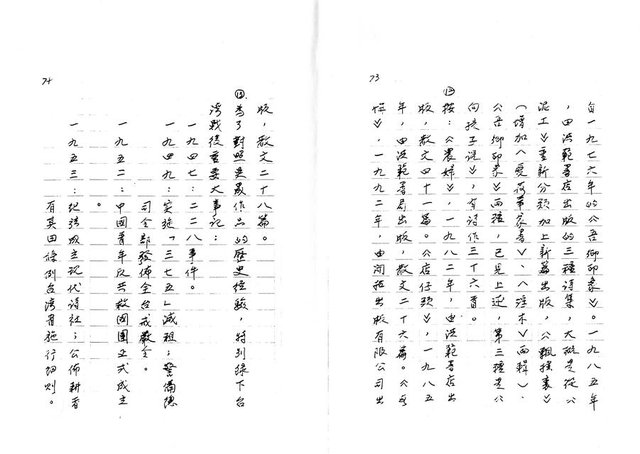 73
自一九七六年的《吾鄉印象》。一九八五年
，由洪範書店出版的三種詩集，大概是從《
泥土》重新分類加上新篇出版，《飄搖裏》
（增加《愛荷華家書》、《注木》兩輯）、
《吾鄉印象》兩種，已見上述，第三種是《
向孩子說》，有詩作三十六首。
⑫按：《農婦》，一九八二年，由洪範書店出
版，散文四十一篇。《店仔頭》，一九八五
年，由洪範書局出版，散文二十六篇。《
》，一九九二年，由洞程出版有限公司出
74
版，散文二十八篇。
⑬為了對照吳晟作品的歷史經驗，特別錄下台
灣戰後重要大事記：
一九四七：二二八事件。
一九四九：實施「三七五」減租；警備總
司令部發佈全台戒嚴令。
一九五二：中國青年反共救國團正式成立
。
一九五三：紀弦成立現代詩社；公佈耕者
有其田條例台灣省施行細則。